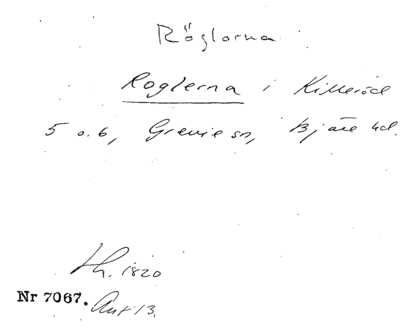 Röglorna
Roglerna i Killeröd
5 o. 6, Grevie sn, Bjäre hd.
h. 1820
Nr 7067. Akt 13.